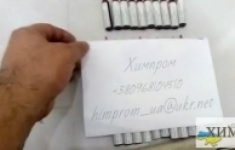 Химпром
+380968104510
himprom_ua@ukr.net
ХИМ